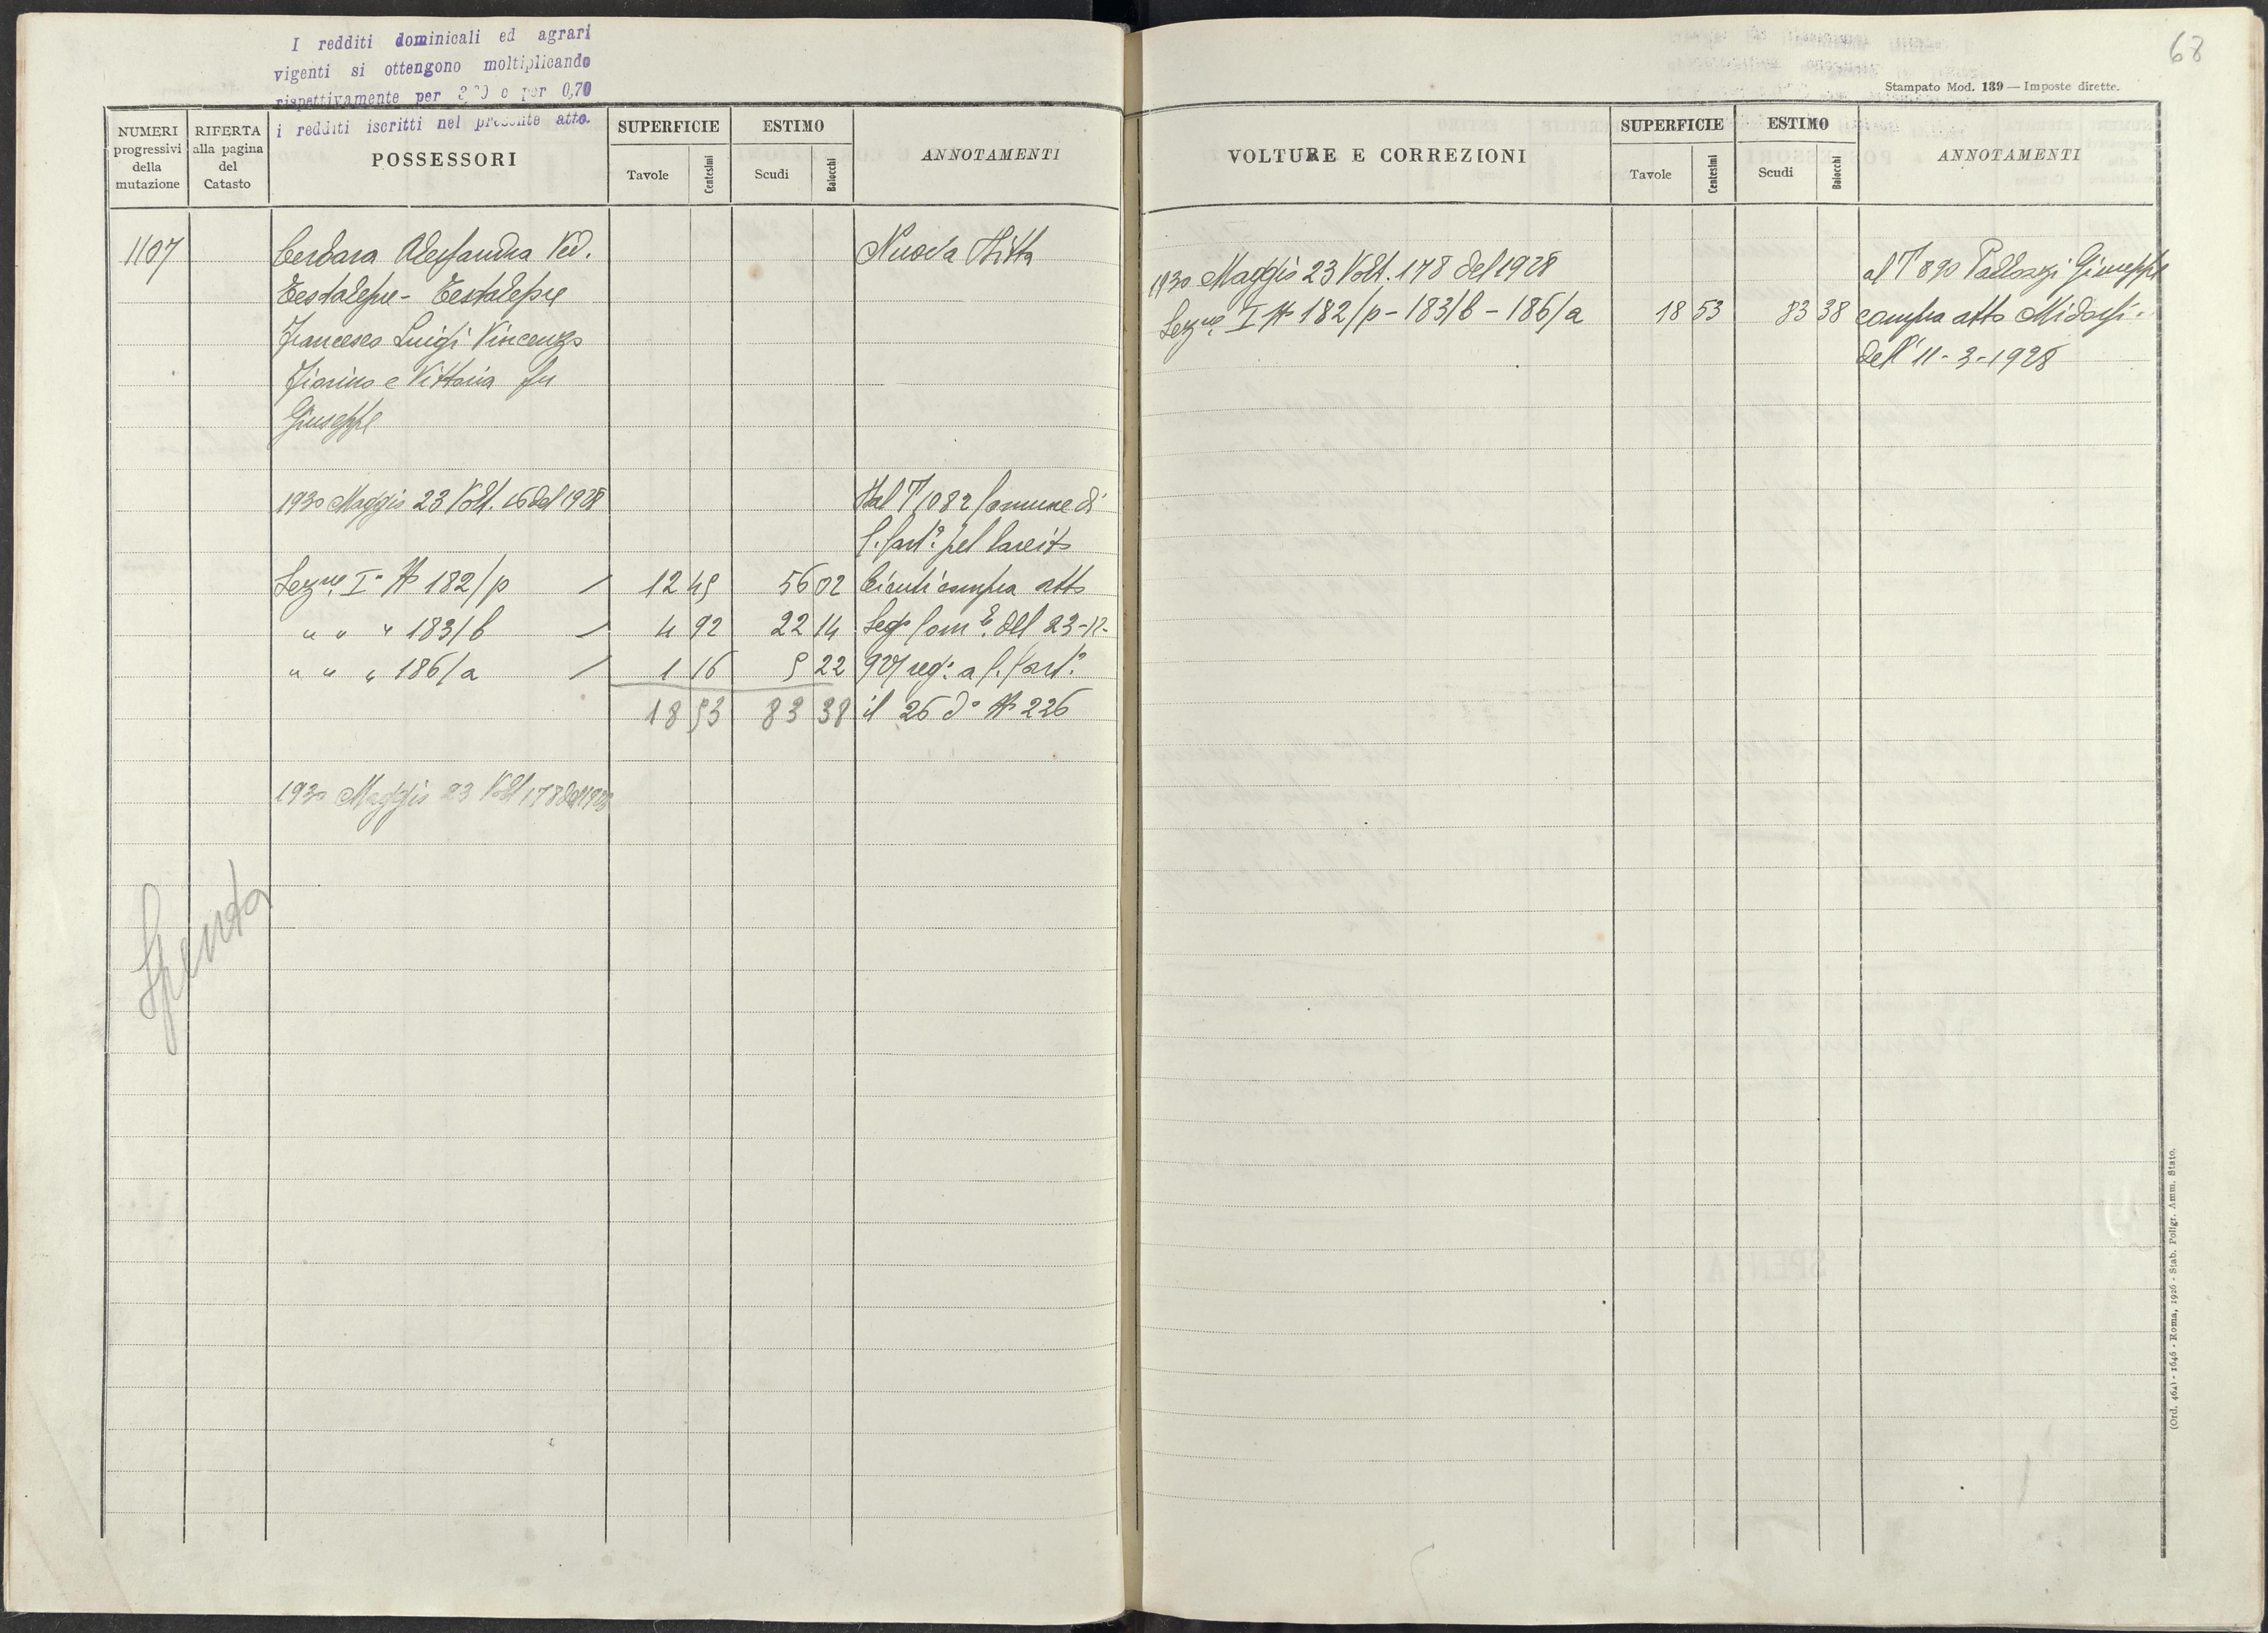 I redditi dominicali ed agrari
vigenti si ottengono moltiplicando
rispettivamente per e per 0,70
i redditi iscritti nel presente atto.
NUMERI
progressivi
della
mutazione
RIFERTA
alla pagina
del
Catasto
POSSESSORI
SUPERFICIE
Tavole
Centesimi
ESTIMO
Scudi
Baiocchi
ANNOTAMENTI
1107
Cerbara Alessandra Ved.
Nuova Ditta
Francesco Luigi Vincenzo
Fiorino e Vittoria fu
Giuseppe
1930 Maggio 23 Volt. 16 del 1928
Dal T 1082 Comune di
Sezne. Ia N 182/p / 12 45 56 02 compra atto
" " " 183/b / 4 92 22 14 del 23-12-
" " " 186/a / 1 16 5 22
18 53 83 38 il 26 do N 226
1930 Maggio 23 Volt 178 del 1928
Spenta
68
Stampato Mod. 139 — Imposte dirette.
VOLTURE E CORREZIONI
SUPERFICIE
Tavole
Centesimi
ESTIMO
Scudi
Baiocchi
ANNOTAMENTI
1930 Maggio 23 Volt. 178 del 1928
al T 890 Giuseppe
Sezne. I N 182/p - 183/b - 186/a 18 53 83 38 compra atto
dell' 11-3-1928
(Ord. 464) - 1646 - Roma, 1926 - Stab. Poligr. Amm. Stato.